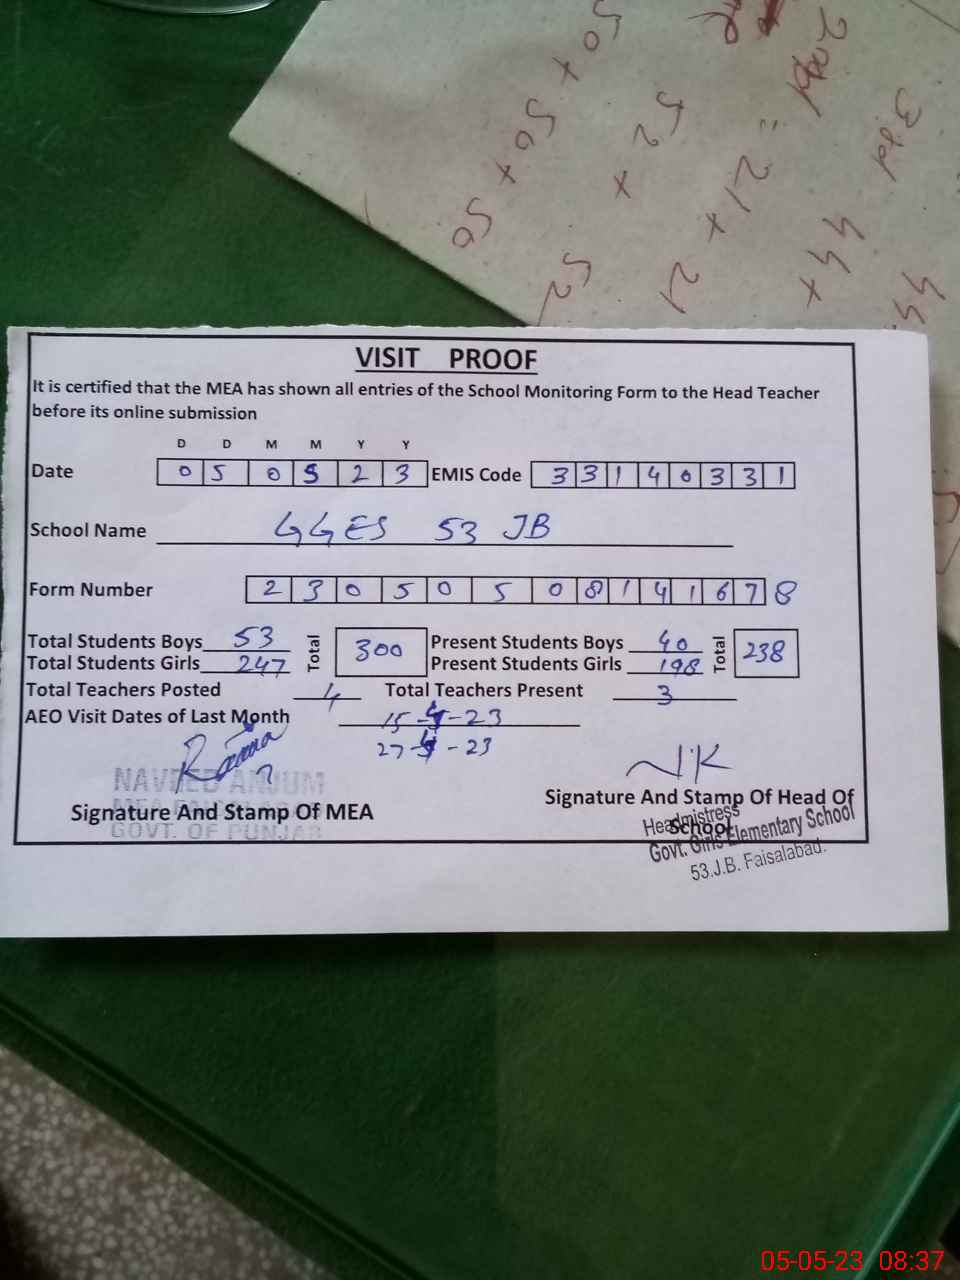 50 + 50 + 50
52 + 52
= 21 + 21
2nd
3rd 44 +
44
VISIT PROOF
It is certified that the MEA has shown all entries of the School Monitoring Form to the Head Teacher
before its online submission
D D M M Y Y
Date 0 5 0 5 2 3 EMIS Code 3 3 1 4 0 3 3 1
School Name GGES 53 JB
Form Number 2 3 0 5 0 5 0 8 1 4 1 6 7 8
Total Students Boys 53 Total 300 Present Students Boys 40 Total 238
Total Students Girls 247 Present Students Girls 198
Total Teachers Posted 4 Total Teachers Present 3
AEO Visit Dates of Last Month 15-4-23
27-4-23
NAVEED ANJUM
Signature And Stamp Of MEA
MEA FAISALABAD
GOVT. OF PUNJAB
N.K
Signature And Stamp Of Head Of
School
Headmistress
Govt. Girls Elementary School
53.J.B. Faisalabad.
05-05-23 08:37